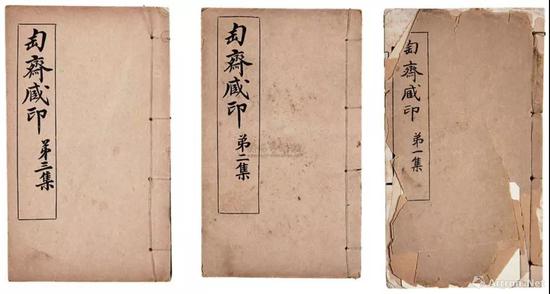 匋齋臧印
弟三集
匋齋臧印
弟二集
匋齋臧印
弟一集
Artron.Net